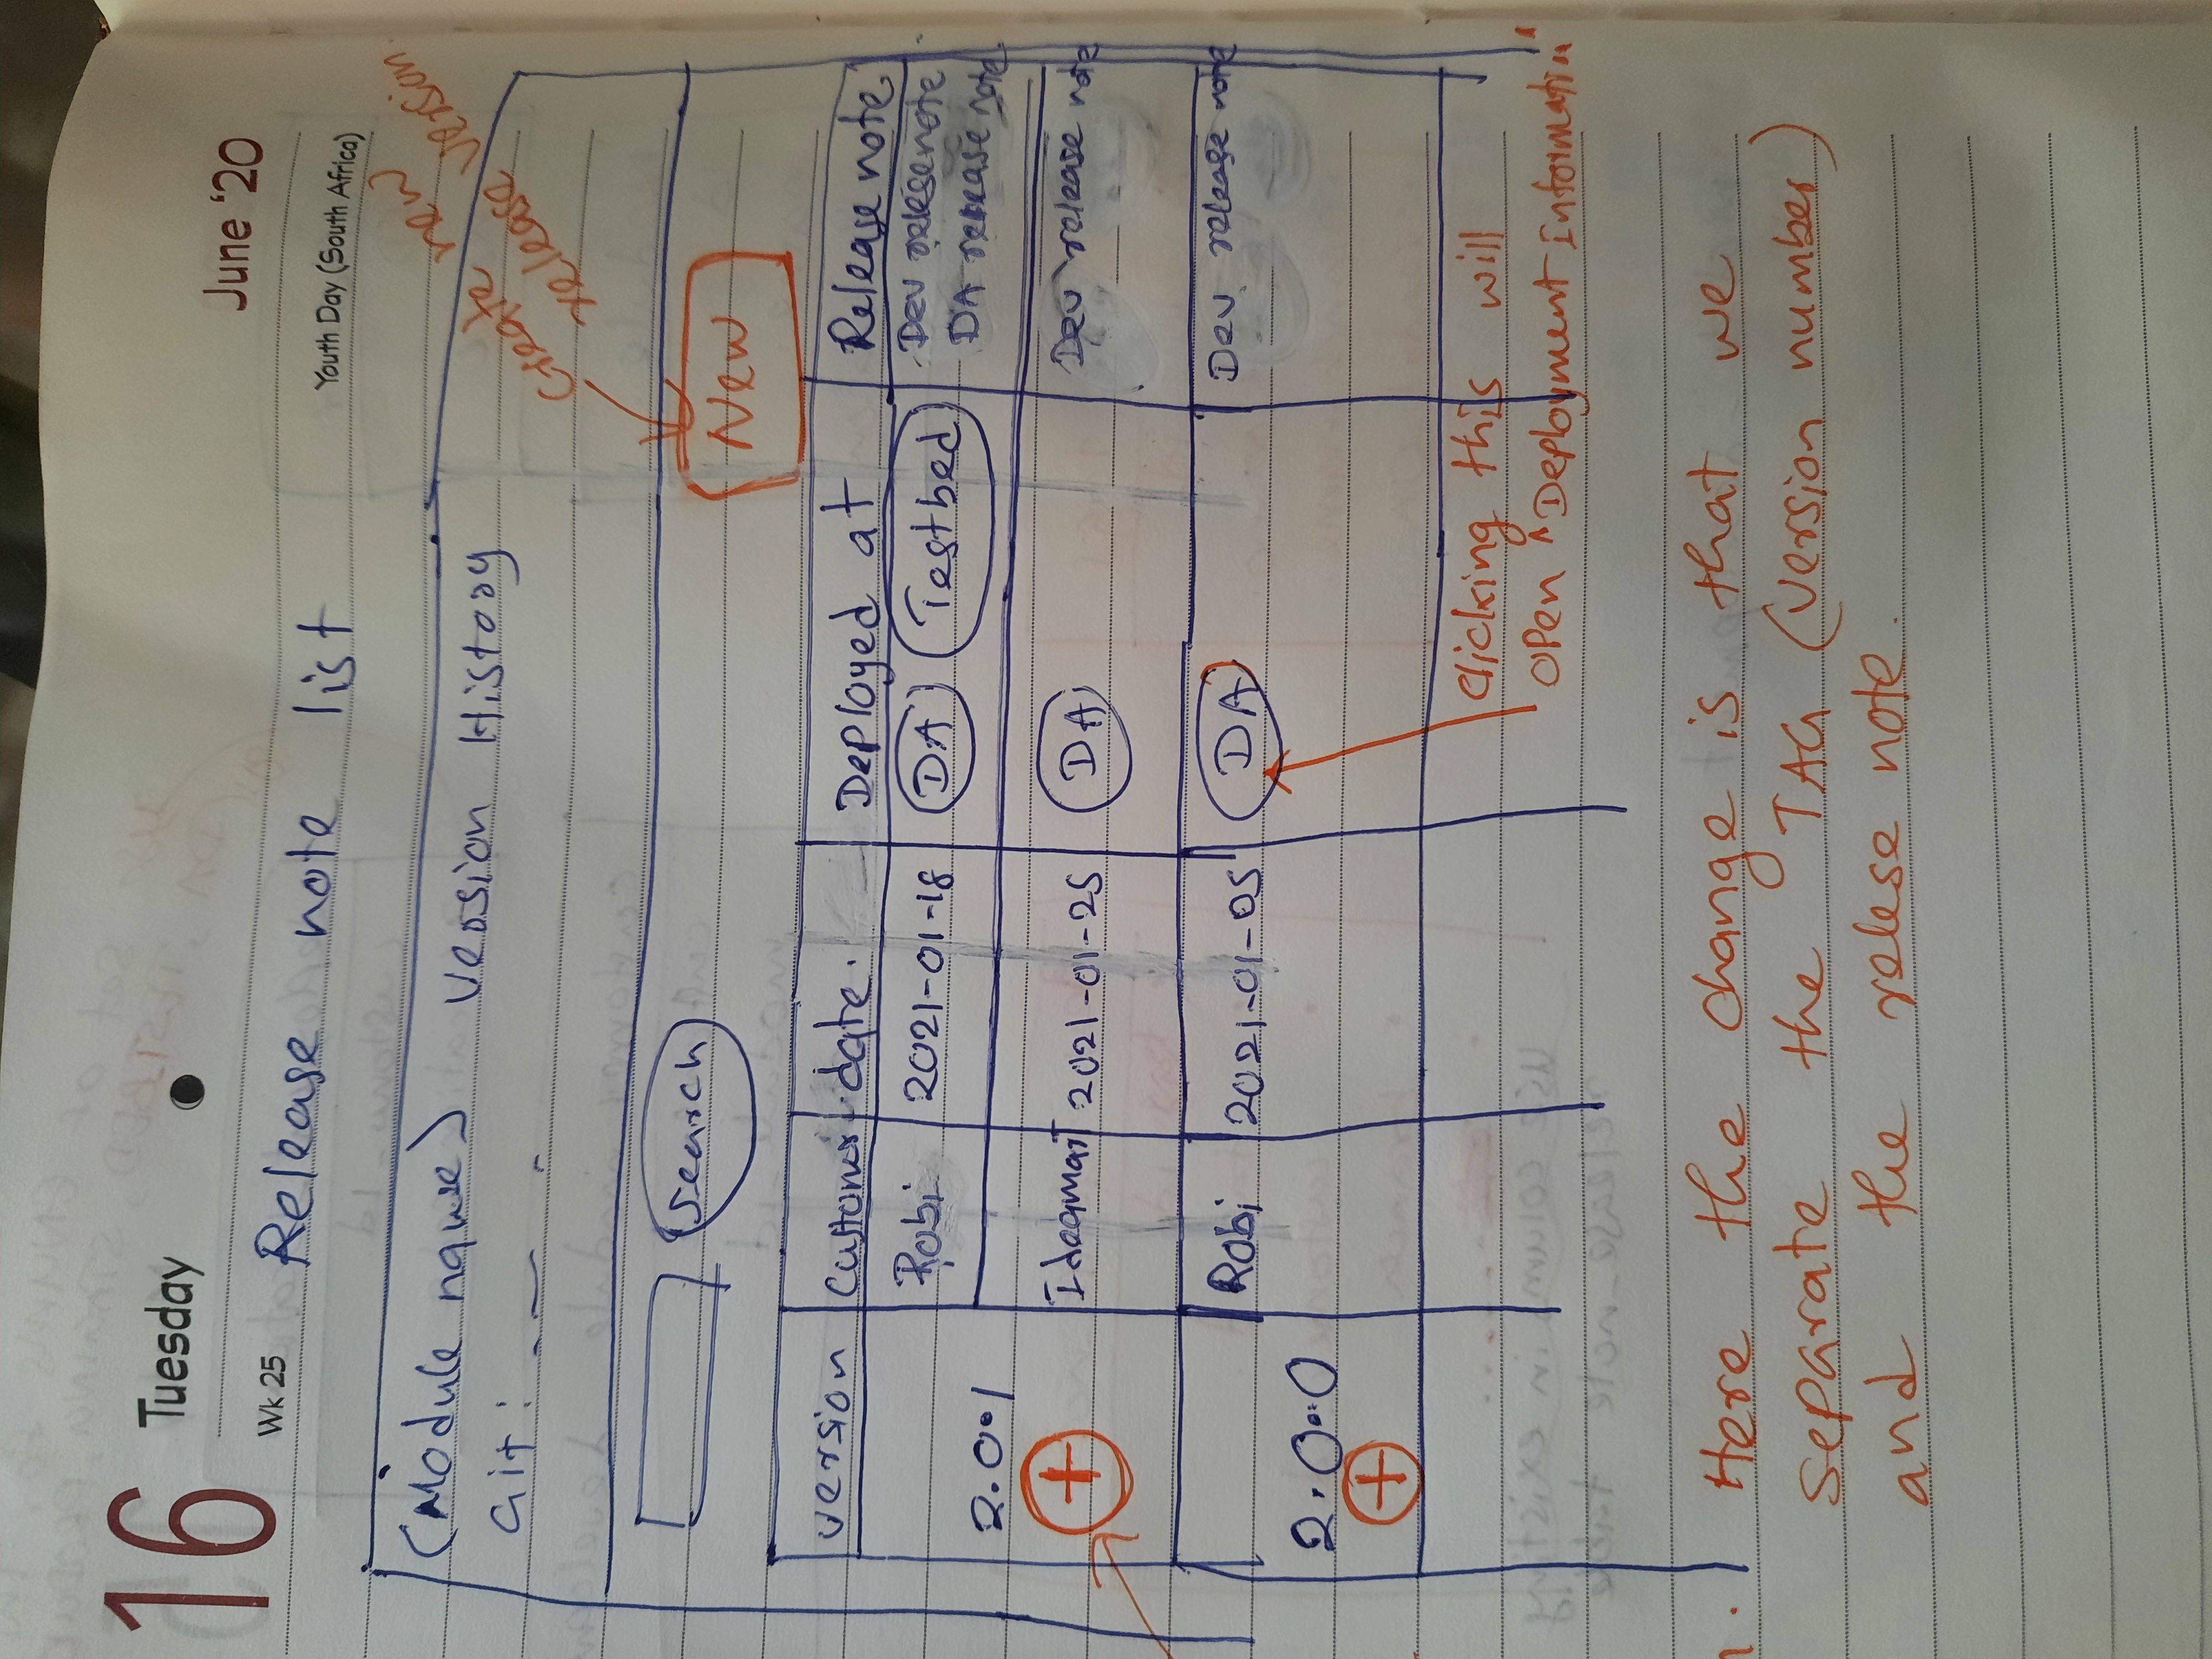 16 Tuesday
June '20
Wk 25
Release note list
Youth Day (South Africa)
(Module name) Version History
Git:
Create new
release version.
Search
New
version customer date. Deployed at Release note
2.0.1
Robi 2021-01-18 DA Testbed Dev relese note
DA release note
+
Ideamart 2021-01-25 DA Dev release note
Robi 2021-01-05 DA Dev release note
2.0.0
+
clicking this will
open "Deployment Information"
Here the change is that we
separate the TAG (version number)
and the relese note.